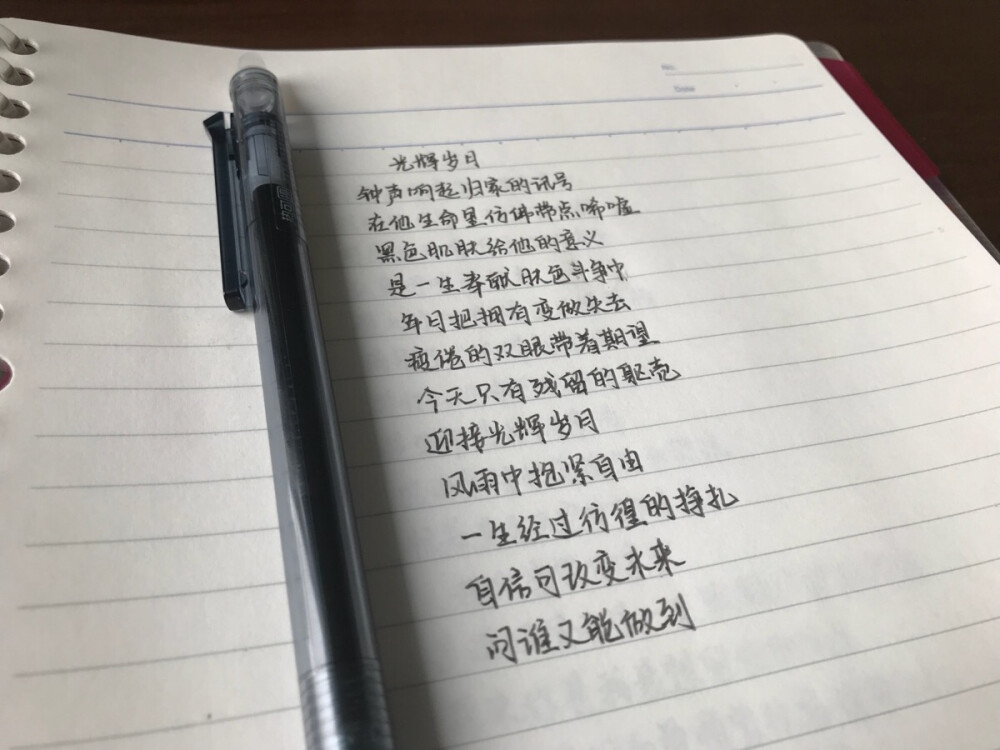 Date
光辉岁月
钟声响起归家的讯号
在他生命里仿佛带点唏嘘
黑色肌肤给他的意义
是一生奉献肤色斗争中
年月把拥有变做失去
疲倦的双眼带着期望
今天只有残留的躯壳
迎接光辉岁月
风雨中抱紧自由
一生经过彷徨的挣扎
自信可改变未来
问谁又能做到